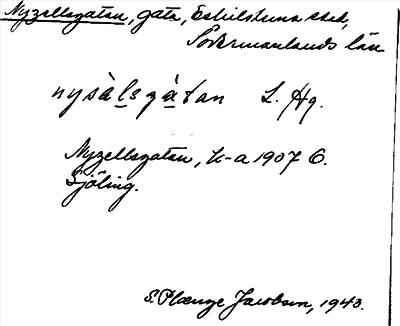 Nyzellsgatan, gata, Eskilstuna stad,
Södermanlands län
nysàlsgàtan L. Hg.
Nyzellsgatan, k-a 1907 C.
Sjöling.
S. Plænge Jacobson, 1943.